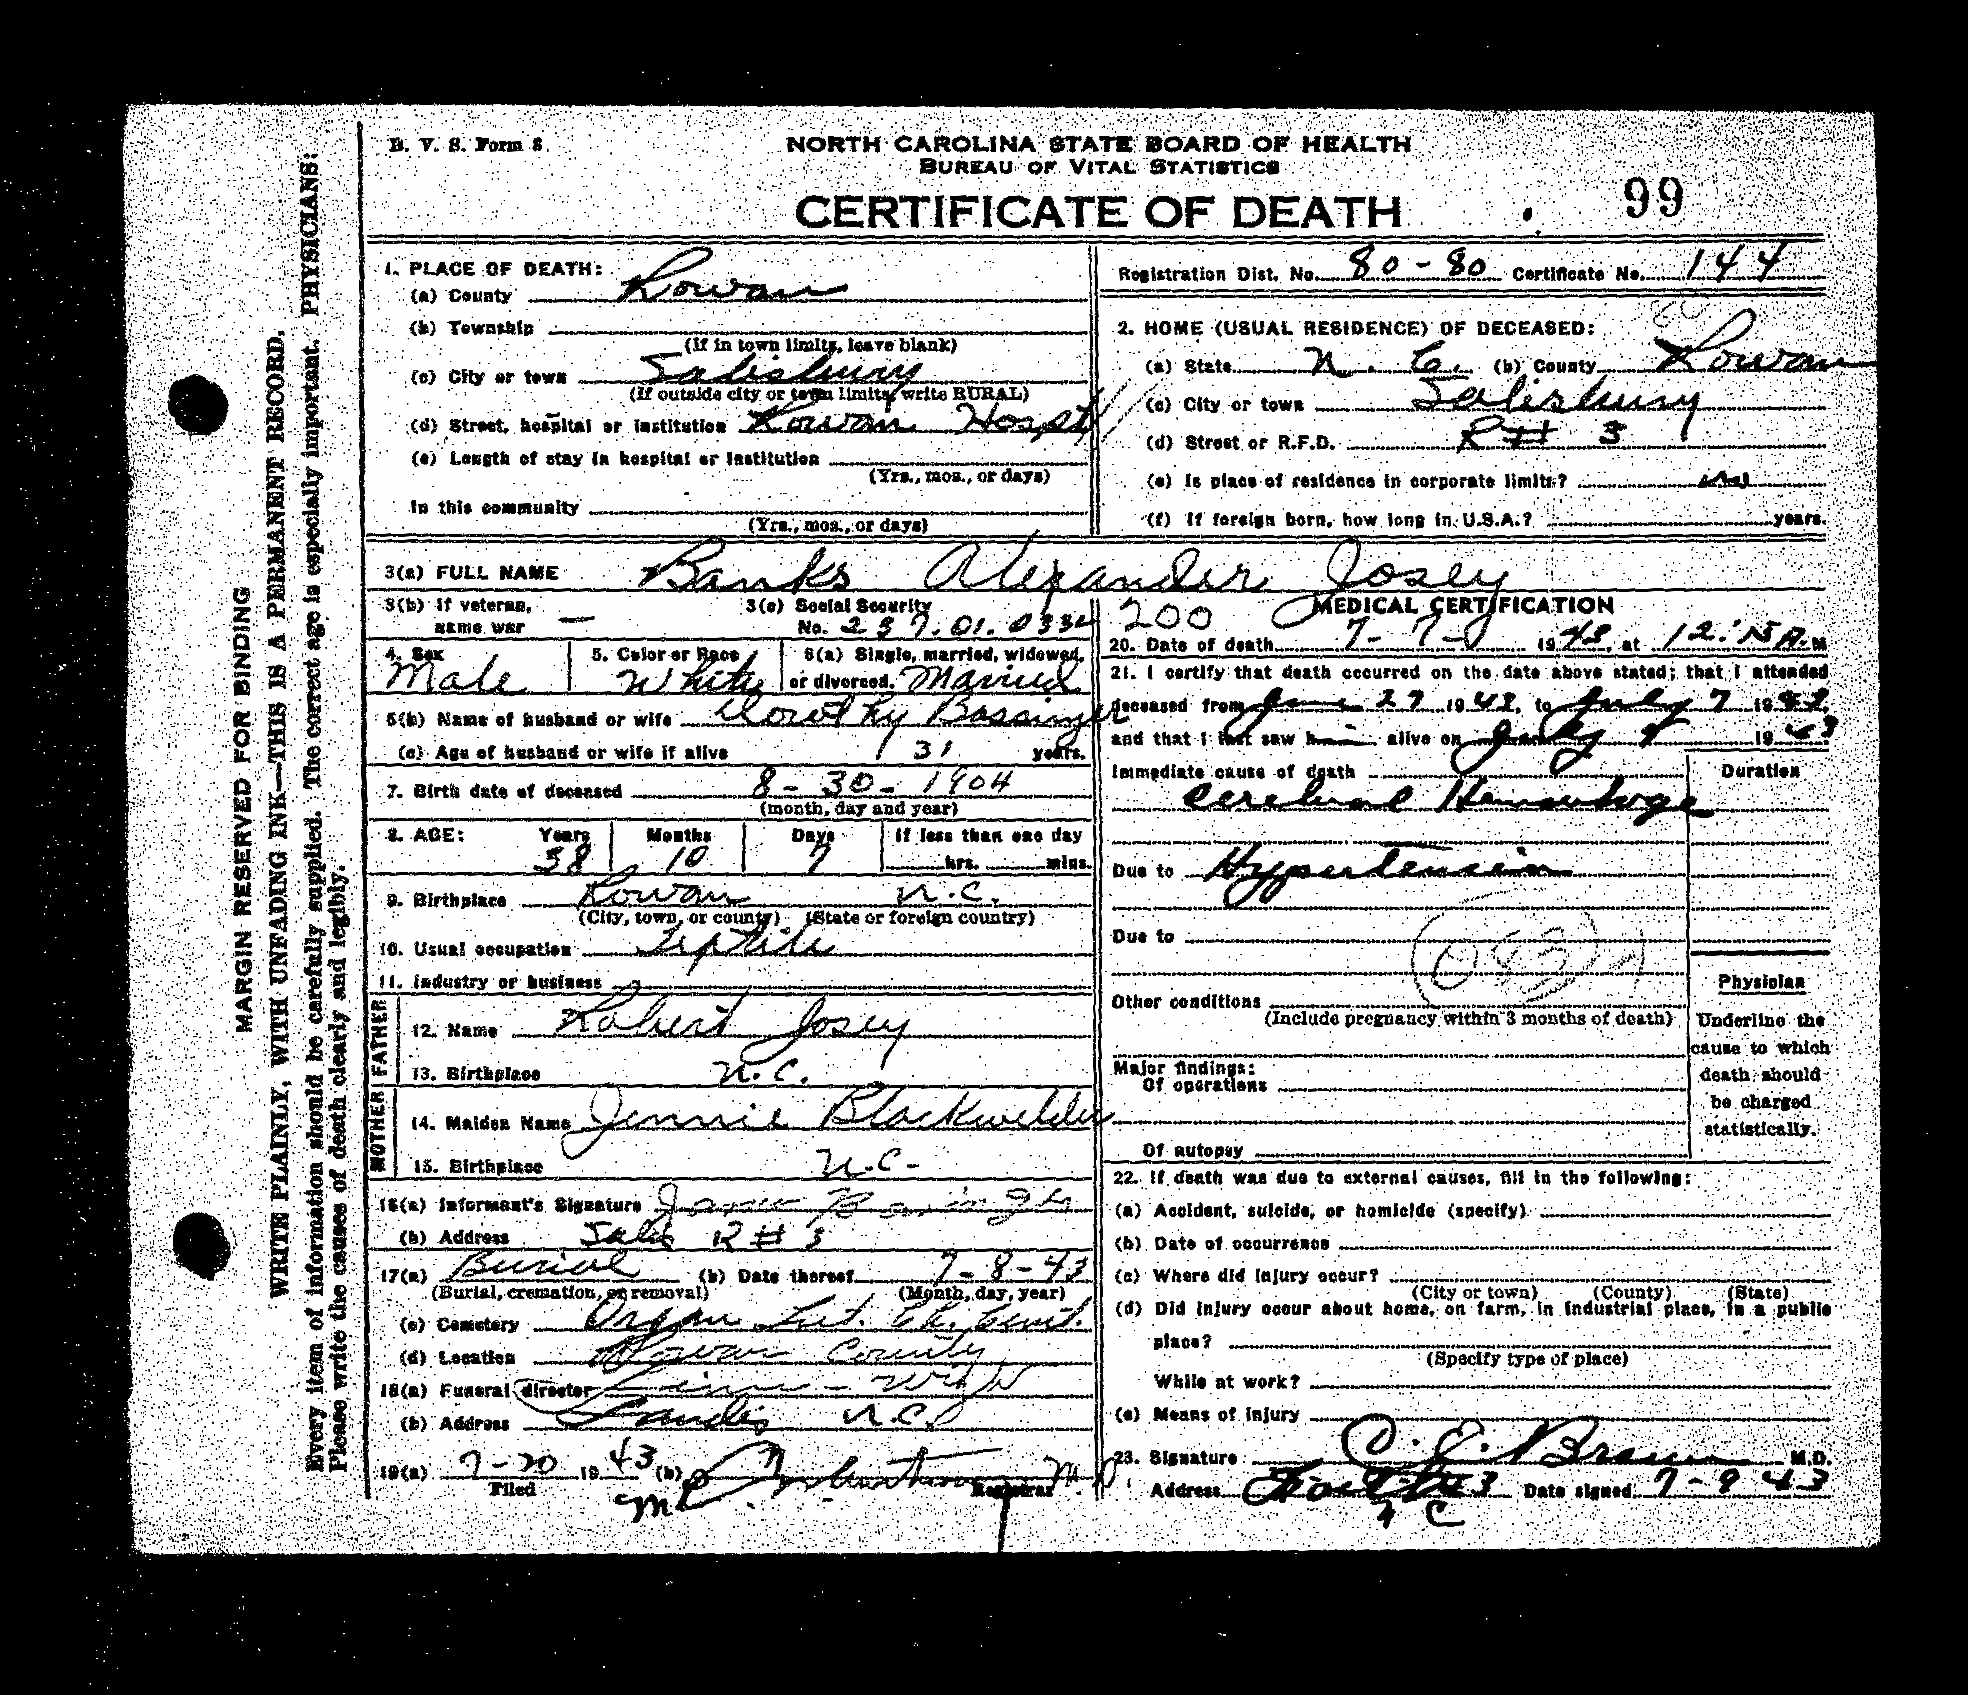 B. V. S. Form 8
NORTH CAROLINA STATE BOARD OF HEALTH
BUREAU OF VITAL STATISTICS
CERTIFICATE OF DEATH
99
MARGIN RESERVED FOR BINDING
WRITE PLAINLY, WITH UNFADING INK—THIS IS A PERMANENT RECORD.
Every item of information should be carefully supplied. The correct age is especially important. PHYSICIANS:
Please write the causes of death clearly and legibly.
1. PLACE OF DEATH:
(a) County Rowan
(b) Township
(If in town limits, leave blank)
(c) City or town Salisbury
(If outside city or town limits, write RURAL)
(d) Street, hospital or institution Rowan Hospt
(e) Length of stay in hospital or institution
(Yrs., mos., or days)
In this community
(Yrs., mos., or days)
Registration Dist. No. 80-80 Certificate No. 144
2. HOME (USUAL RESIDENCE) OF DECEASED:
(a) State N. C. (b) County Rowan
(c) City or town Salisbury
(d) Street or R.F.D. R# 3
(e) Is place of residence in corporate limits?
(f) If foreign born, how long in U.S.A.? years.
3(a) FULL NAME Banks Alexander Josey
3(b) If veteran, name war —
3(c) Social Security No. 237.01.0334
4. Sex Male
5. Color or Race White
6(a) Single, married, widowed, or divorced. Married
6(b) Name of husband or wife Dorothy Bassinger
(c) Age of husband or wife if alive 31 years.
7. Birth date of deceased 8-30-1904
(month, day and year)
8. AGE: Years 38 Months 10 Days 7 If less than one day hrs. mins.
9. Birthplace Rowan N.C.
(City, town, or county) (State or foreign country)
10. Usual occupation Textile
11. Industry or business
FATHER
12. Name Robert Josey
13. Birthplace N.C.
MOTHER
14. Maiden Name Jennie Blackwelder
15. Birthplace N.C.
16(a) Informant's Signature
(b) Address Salis R # 3
17(a) Burial (b) Date thereof 7-8-43
(Burial, cremation, or removal) (Month, day, year)
(c) Cemetery Organ Lut. Ch. Cemt.
(d) Location Rowan County
18(a) Funeral director
(b) Address Landis N.C.
19(a) 7-20 1943 (b) M.D.
Filed Registrar
200
MEDICAL CERTIFICATION
20. Date of death 7-7- 1943, at 12:15 A.M
21. I certify that death occurred on the date above stated; that I attended
deceased from June 27 1943, to July 7 1943,
and that I last saw h alive on July 1943
Immediate cause of death Duration
Cerebral Hemorrhage
Due to Hypertension
Due to
Other conditions
(Include pregnancy within 3 months of death)
Major findings:
Of operations
Of autopsy
Physician
Underline the
cause to which
death should
be charged
statistically.
22. If death was due to external causes, fill in the following:
(a) Accident, suicide, or homicide (specify)
(b) Date of occurrence
(c) Where did injury occur?
(City or town) (County) (State)
(d) Did injury occur about home, on farm, in industrial place, in a public
place?
(Specify type of place)
While at work?
(e) Means of injury
23. Signature M.D.
Address Date signed 7-9 43